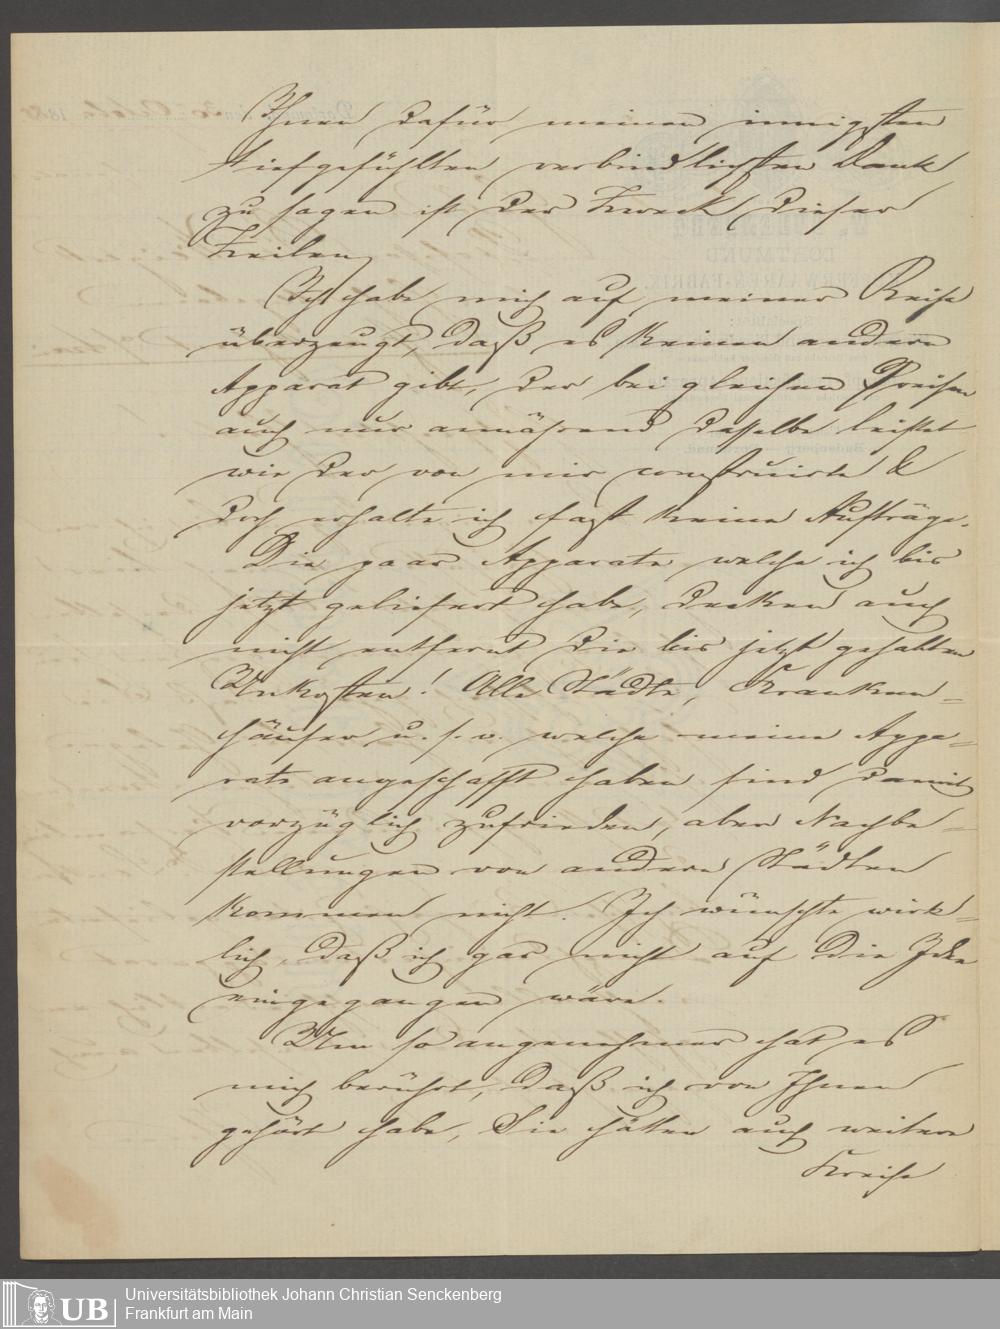 Ihnen dafür meinen innigsten
tiefgefühlten verbindlichsten Dank
zu sagen ist der Zweck dieser
Zeilen
Ich habe mich auf meiner Reise
überzeugt, daß es keinen andern
Apparat gibt, der bei gleichen Preisen
auch nur annährend dasselbe leistet
wie der von mir construirte &
doch erhalte ich fast keine Aufträge.
Die paar Apparate welche ich bis
jetzt geliefert habe, decken auch
nicht entfernt die bis jetzt gehabten
Unkosten! Alle Städte, Kranken-
häuser u. s. w. welche meine Appa-
rate angeschafft haben sind damit
vorzüglich zufrieden, aber Nachbe-
stellungen von andern Städten
kommen nicht. Ich wünschte wirk-
lich, daß ich gar nicht auf die Idee
eingegangen wäre.
Um so angenehmer hat es
mich berührt, daß ich von Ihnen
gehört habe, Sie hätten auch weitere
Kreise
UB
Universitätsbibliothek Johann Christian Senckenberg
Frankfurt am Main